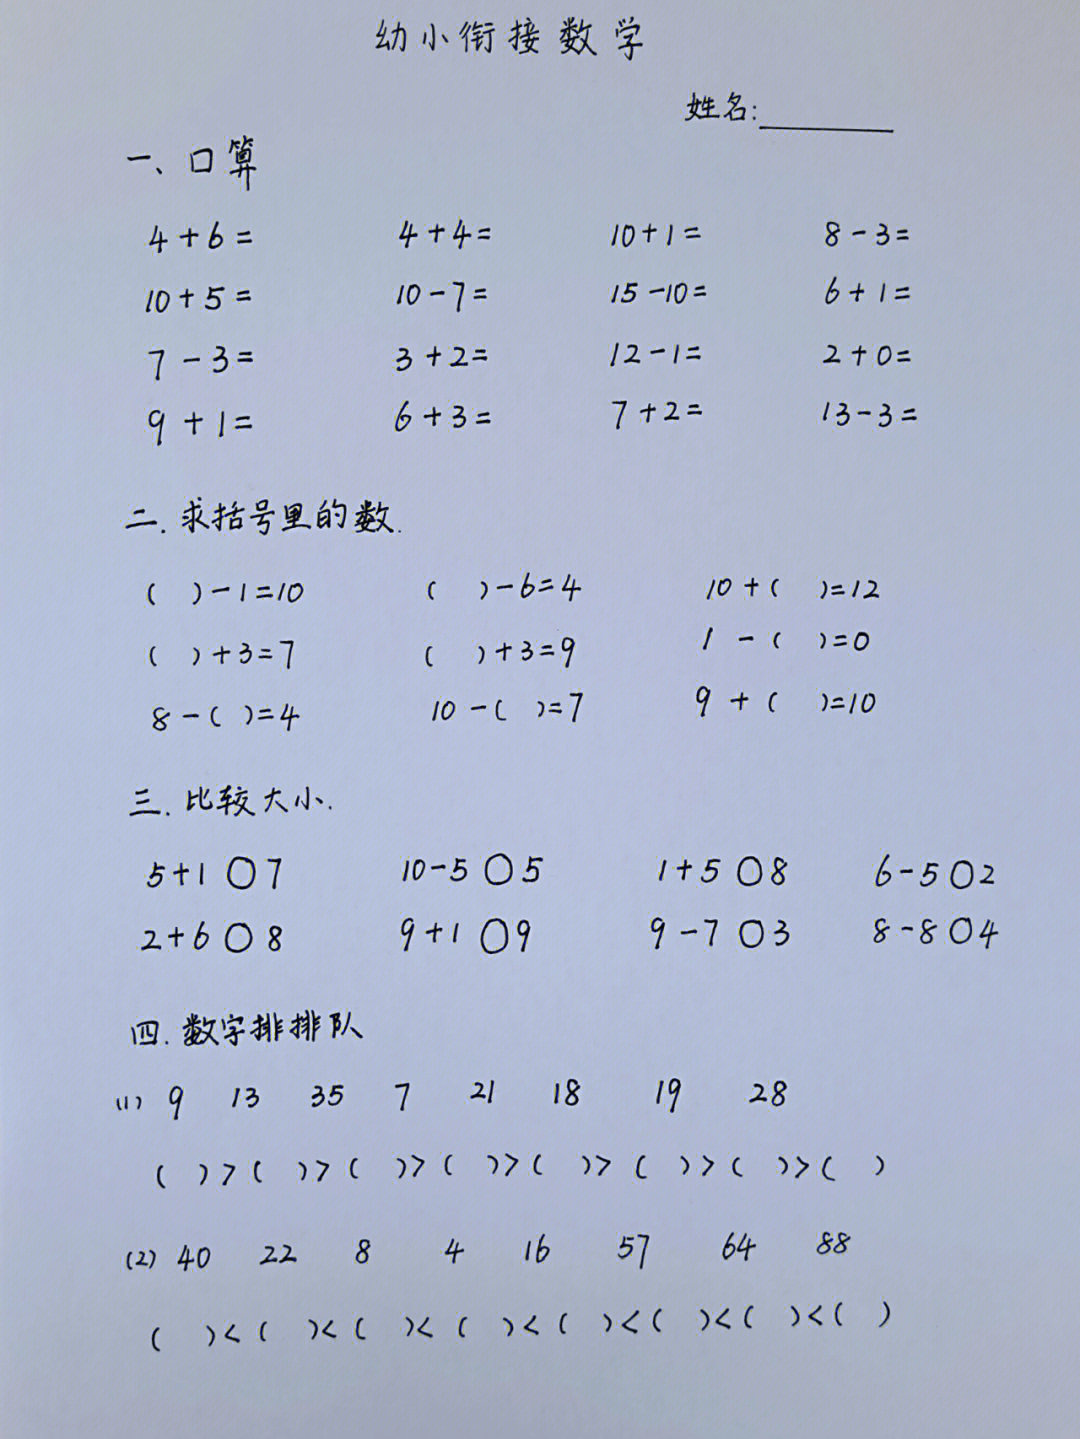 幼小衔接数学
姓名:______
一、口算
4+6= 4+4= 10+1= 8-3=
10+5= 10-7= 15-10= 6+1=
7-3= 3+2= 12-1= 2+0=
9+1= 6+3= 7+2= 13-3=
二.求括号里的数.
( )-1=10 ( )-6=4 10+( )=12
( )+3=7 ( )+3=9 1-( )=0
8-( )=4 10-( )=7 9+( )=10
三.比较大小.
5+1○7 10-5○5 1+5○8 6-5○2
2+6○8 9+1○9 9-7○3 8-8○4
四.数字排排队
(1) 9 13 35 7 21 18 19 28
( )>( )>( )>( )>( )>( )>( )>( )
(2) 40 22 8 4 16 57 64 88
( )<( )<( )<( )<( )<( )<( )<( )